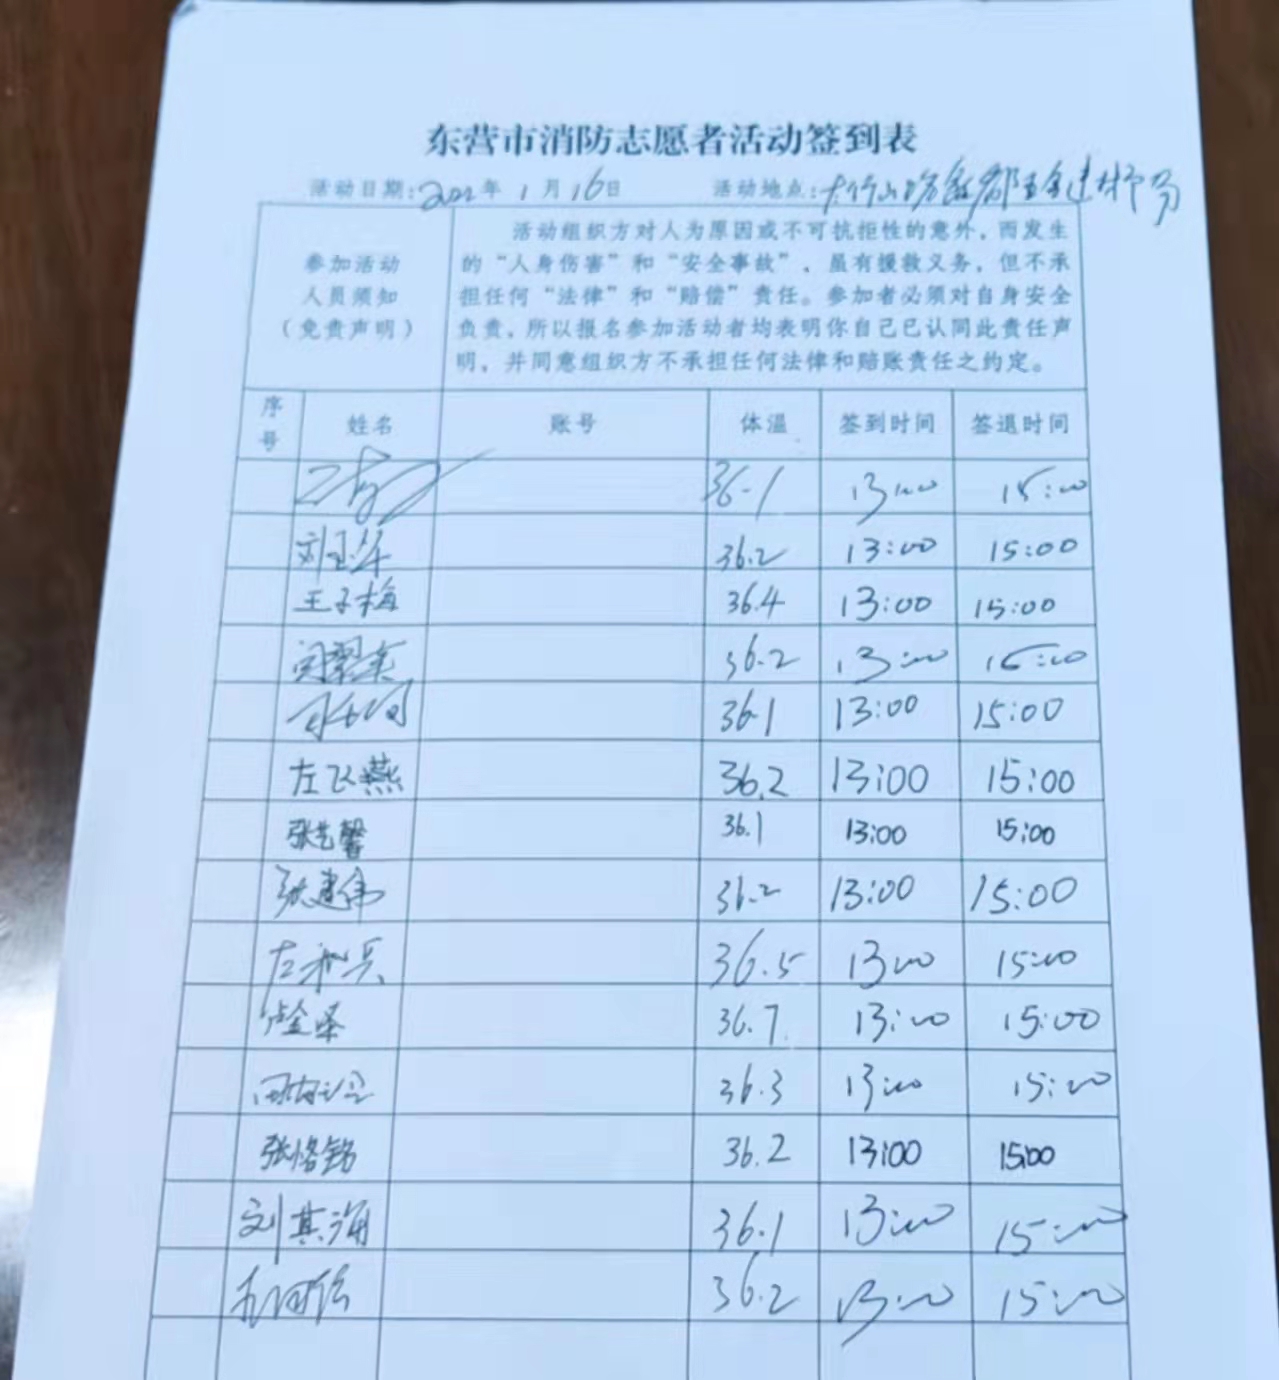 东营市消防志愿者活动签到表
活动日期：2022年1月16日 活动地点：
参加活动
人员须知
（免责声明）
活动组织方对人为原因或不可抗拒性的意外，而发生
的“人身伤害”和“安全事故”，虽有援救义务，但不承
担任何“法律”和“赔偿”责任。参加者必须对自身安全
负责，所以报名参加活动者均表明你自己已认同此责任声
明，并同意组织方不承担任何法律和赔账责任之约定。
序号 姓名 账号 体温 签到时间 签退时间
36.1 13:00 15:00
刘玉华 36.2 13:00 15:00
王子梅 36.4 13:00 15:00
36.2 13:00 15:00
36.1 13:00 15:00
左飞燕 36.2 13:00 15:00
张艺馨 36.1 13:00 15:00
张建伟 36.2 13:00 15:00
36.5 13:00 15:00
36.7 13:00 15:00
36.3 13:00 15:00
张恪铭 36.2 13:00 15:00
刘其海 36.1 13:00 15:00
36.2 13:00 15:00